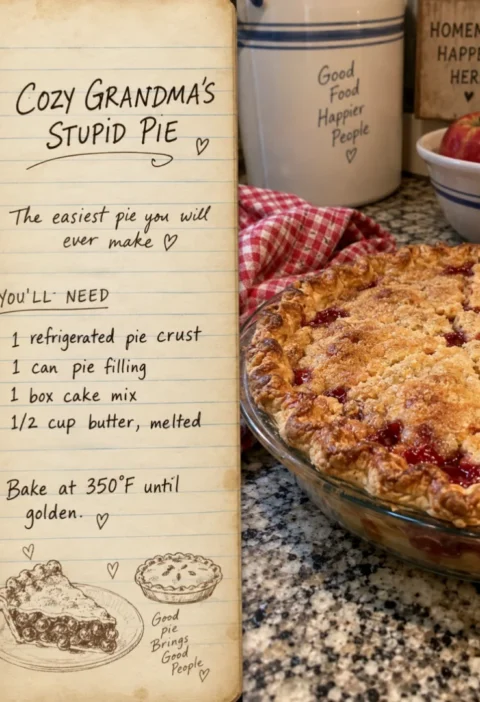 COZY GRANDMA'S
STUPID PIE
The easiest pie you will
ever make
YOU'LL NEED
1 refrigerated pie crust
1 can pie filling
1 box cake mix
1/2 cup butter, melted
Bake at 350°F until
golden.
Good
pie
Brings
Good
People
Good
Food
Happier
People
HOMEM
HAPPE
HER